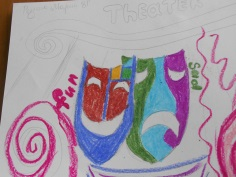 Theater
fun
Sad